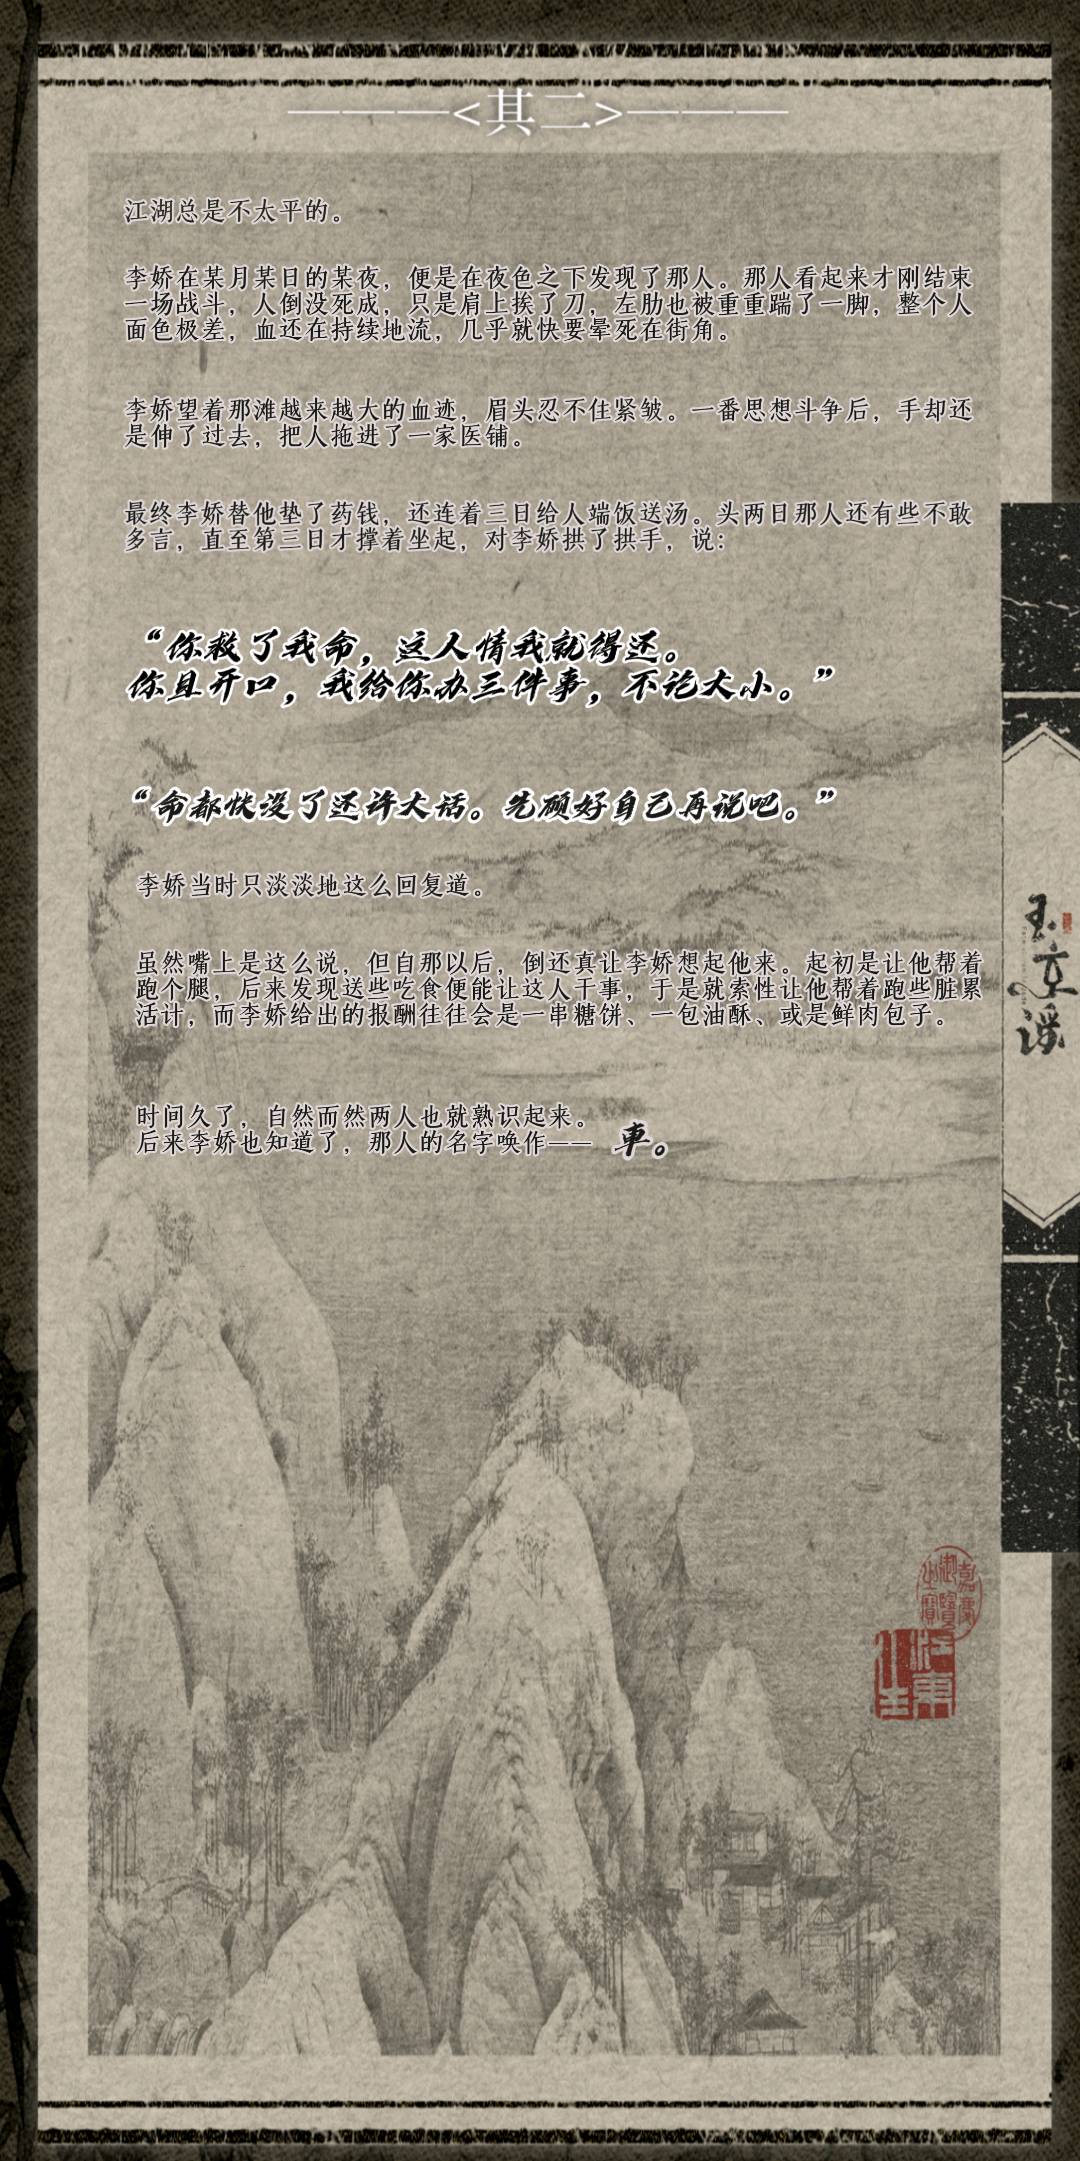 ————<其二>————
江湖总是不太平的。
李娇在某月某日的某夜，便是在夜色之下发现了那人。那人看起来才刚结束
一场战斗，人倒没死成，只是肩上挨了刀，左肋也被重重踹了一脚，整个人
面色极差，血还在持续地流，几乎就快要晕死在街角。
李娇望着那滩越来越大的血迹，眉头忍不住紧皱。一番思想斗争后，手却还
是伸了过去，把人拖进了一家医铺。
最终李娇替他垫了药钱，还连着三日给人端饭送汤。头两日那人还有些不敢
多言，直至第三日才撑着坐起，对李娇拱了拱手，说：
“你救了我命，这人情我就得还。
你且开口，我给你办三件事，不论大小。”
“命都快没了还许大话。先顾好自己再说吧。”
李娇当时只淡淡地这么回复道。
虽然嘴上是这么说，但自那以后，倒还真让李娇想起他来。起初是让他帮着
跑个腿，后来发现送些吃食便能让这人干事，于是就索性让他帮着跑些脏累
活计，而李娇给出的报酬往往会是一串糖饼、一包油酥、或是鲜肉包子。
时间久了，自然而然两人也就熟识起来。
后来李娇也知道了，那人的名字唤作—— 車。
玉京谣
嘉庆御览之宝